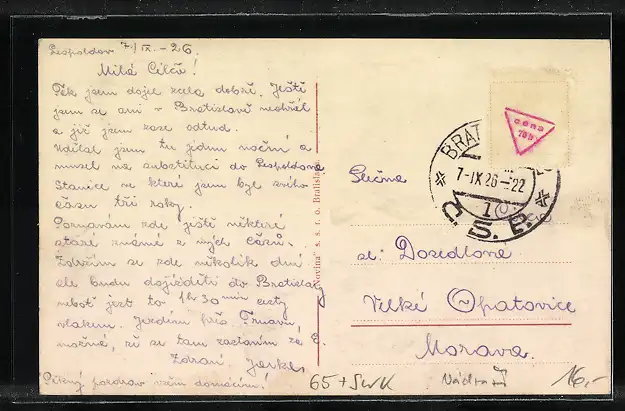 Leopoldov 7/IX.-26.
Milá Cilčo!
Pěk jsem dojel zcela dobře. Ještě
jsem se ani v Bratislavě neohřál
a již jsem zase odtud.
Udělal jsem tu jednu noční a
musel na substituci do Leopoldova
Stanice ve které jsem byl svého
času tři roky.
Poznávám zde ještě některé
staré známé z mých časů.
Zdržím se zde několik dní
ale budu dojížděti do Bratislavy
neboť jest to 1h 30 min cesty
vlakem. Jezdím přes Trnavu,
možné, že se tam zastavím ke
Zdraví
Pěkný pozdrav všem domácím.
"Novina" s. s. r. o. Bratislava
cena
BRAT
7-IX 26-22
1
Č. S. P.
Slečna
sl. Dosedlova
Velké Opatovice
Morava.
65 + SWK
16,-